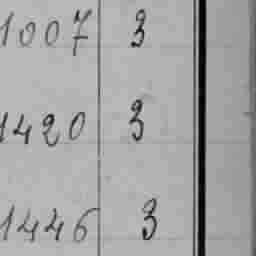 1007 3
1420 3
1446 3